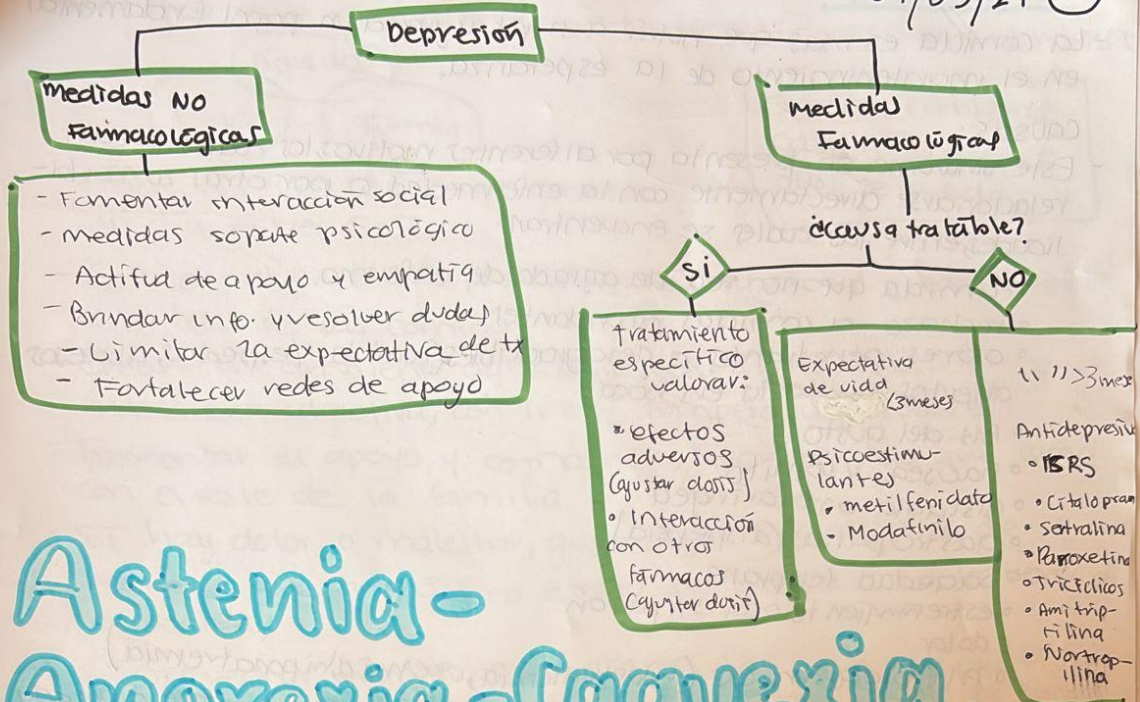 Depresión
medidas NO
Farmacológicas
- Fomentar interacción social
- medidas soporte psicológico
- Actitud de apoyo y empatía
- Brindar info. y resolver dudas
- Limitar la expectativa de tx
- Fortalecer redes de apoyo
medidas
Farmacológicas
¿causa tratable?
Si
NO
tratamiento
específico
valorar:
• efectos
adversos
(ajustar dosis)
• Interacción
con otros
fármacos
(ajustar dosis)
Expectativa
de vida
<3meses
Psicoestimu-
lantes
• metilfenidato
• Modafinilo
" " >3mes
Antidepresiv
• ISRS
• Citalopram
• Sertralina
• Paroxetina
• Tricíclicos
• Amitrip-
tilina
• Nortrop-
ilina
Astenia-
Anorexia-Caquexia